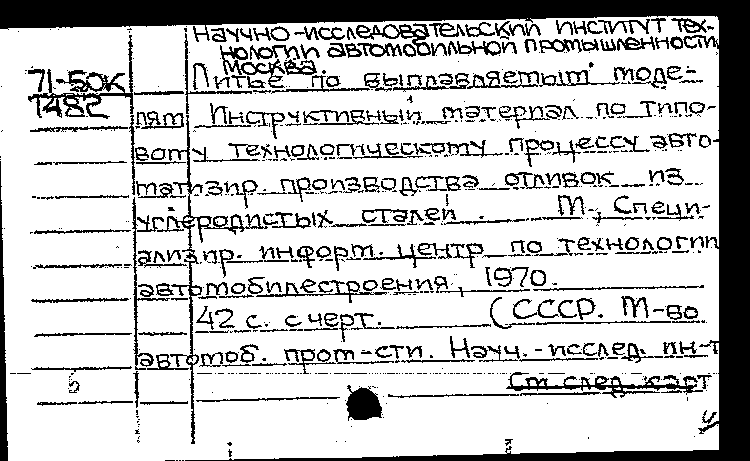 Научно-исследовательский институт тех-
нологии автомобильной промышленности,
Москва.
71-50К
1482
Литье по выплавляемым моде-
лям. Инструктивный материал по типо-
вому технологическому процессу авто-
матизир. производства отливок из
углеродистых сталей. М., Специ-
ализир. информ. центр по технологии
автомобилестроения, 1970.
42 с. с черт. (СССР. М-во
автомоб. пром-сти. Науч.-исслед. ин-т
См след. карт
б